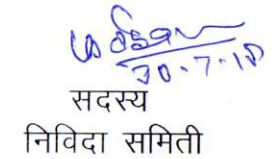 30.7.18
सदस्य
निविदा समिती